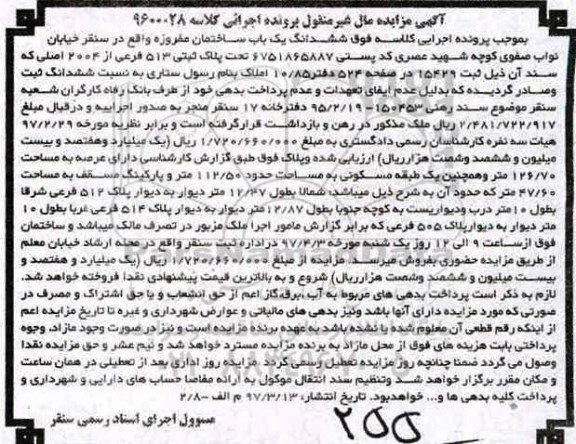 آگهی مزایده مال غیرمنقول پرونده اجرائی کلاسه ۹۶۰۰۰۲۸
بموجب پرونده اجرایی کلاسه فوق ششدانگ یک باب ساختمان مفروزه واقع در سنقر خیابان
نواب صفوی کوچه شهید عصری کد پستی ۶۷۵۱۸۶۵۸۸۷ تحت پلاک ثبتی ۵۱۳ فرعی از ۲۰۰۴ اصلی که
سند آن ذیل ثبت ۱۵۴۲۹ در صفحه ۵۲۴ دفتر ۱۰/۸۵ املاک بنام رسول ستاری به نسبت ششدانگ ثبت
وصادر گردیده که بدلیل عدم ایفای تعهدات و عدم پرداخت بدهی خود از طرف بانک رفاه کارگران شعبه
سنقر موضوع سند رهنی ۱۵۰۴۵۳-۹۵/۲/۱۹ دفترخانه ۱۷ سنقر منجر به صدور اجراییه و درقبال مبلغ
۲/۴۸۱/۷۲۲/۹۱۷ ریال ملک مذکور در رهن و بازداشت قرارگرفته است و برابر نظریه مورخه ۹۷/۲/۲۹
هیات سه نفره کارشناسان رسمی دادگستری به مبلغ ۱/۷۲۰/۶۶۰/۰۰۰ ریال (یک میلیارد وهفتصد و بیست
میلیون و ششصد وشصت هزارریال) ارزیابی شده وپلاک فوق طبق گزارش کارشناسی دارای عرصه به مساحت
۱۲۶/۷۰ متر وهمچنین یک طبقه مسکونی به مساحت حدود ۱۱۲/۵۰ متر و پارکینگ مسقف به مساحت
۴۷/۶۰ متر که حدود آن به شرح ذیل میباشد: شمالا بطول ۱۲/۴۷ متر دیوار به دیوار پلاک ۵۱۲ فرعی شرقا
بطول ۱۰متر درب ودیواریست به کوچه جنوبا بطول ۱۲/۸۷ متر دیوار به دیوار پلاک ۵۱۴ فرعی غربا بطول ۱۰
متر دیوار به دیوارپلاک ۵۰۵ فرعی که برابر گزارش مامور اجرا ملک مزبور در تصرف مالک میباشد و ساختمان
فوق ازساعت ۹ الی ۱۲ روز یک شنبه مورخه ۹۷/۴/۳ دراداره ثبت سنقر واقع در محله ارشاد خیابان معلم
از طریق مزایده حضوری بفروش میرسد. مزایده از مبلغ ۱/۷۲۰/۶۶۰/۰۰۰ ریال (یک میلیارد و هفتصد و
بیست میلیون و ششصد وشصت هزارریال) شروع و به بالاترین قیمت پیشنهادی نقدا فروخته خواهد شد.
لازم به ذکر است پرداخت بدهی های مربوط به آب،برق،گاز اعم از حق انشعاب و یا حق اشتراک و مصرف در
صورتی که مورد مزایده دارای آنها باشد ونیز بدهی های مالیاتی و عوارض شهرداری و غیره تا تاریخ مزایده اعم
از اینکه رقم قطعی آن معلوم شده یا نشده باشد به عهده برنده مزایده است و نیز در صورت وجود مازاد، وجوه
پرداختی بابت هزینه های فوق از محل مازاد به برنده مزایده مسترد خواهد شد و نیم عشر و حق مزایده نقدا
وصول می گردد ضمنا چنانچه روز مزایده تعطیل رسمی گردد مزایده روز اداری بعد از تعطیلی در همان ساعت
و مکان مقرر برگزار خواهد شد وتنظیم سند انتقال موکول به ارائه مفاصا حساب های دارایی و شهرداری و
پرداخت کلیه بدهی ها و... خواهدبود. تاریخ انتشار: ۹۷/۳/۱۳ م الف -۲/۸
مسوول اجرای اسناد رسمی سنقر
۲۵۵